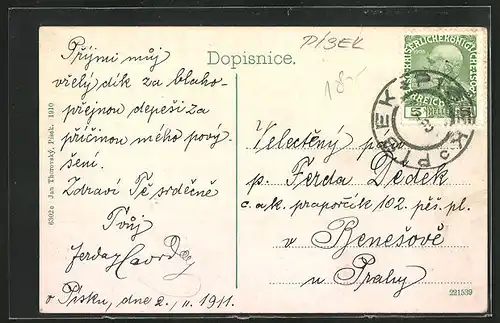 PÍSEK
Dopisnice.
18-
Přijmi můj
vřelý dík za blaho-
přejnou depeši za
příčinou mého pový-
šení.
Zdraví Tě srdečně
Tvůj
Ferda
v Písku, dne 2., 11. 1911.
6302e Jan Thomovský, Písek. 1910
PISEK
Velectěný pan
p. Ferda Dedek
c. a k. praporčík 102. pěš. pl.
v Benešově
u Prahy
221539